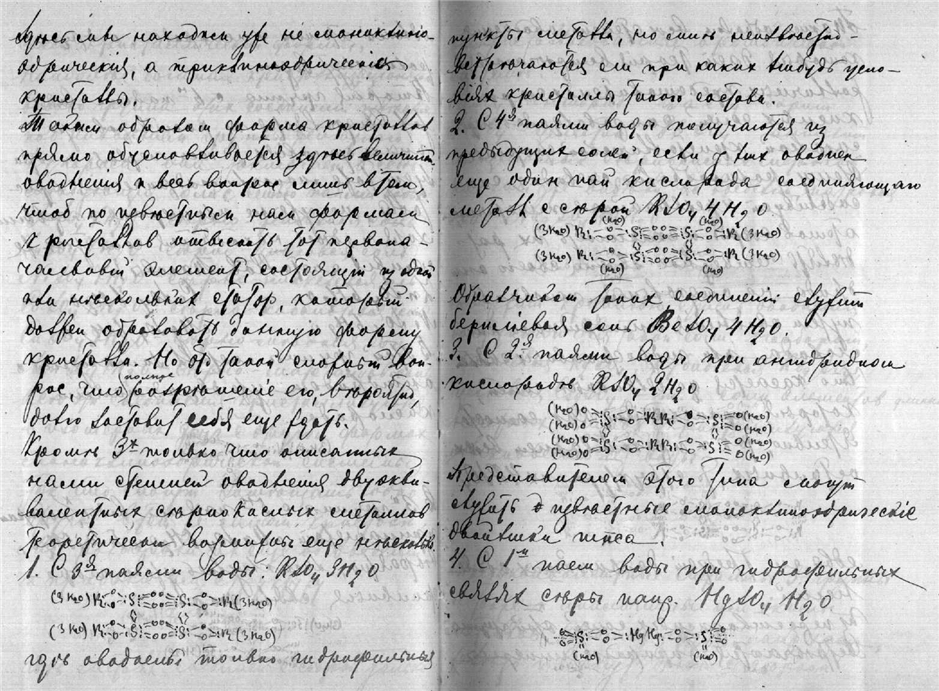 мы находим уже не моноклино-
эдрическия, а триклиноэдрическия
кристаллы.
образом форма кристаллов
прямо обусловливается здесь величиной
оводнения и весь вопрос лишь в том,
чтоб по известным нам формам
кристаллов отыскать тот первона-
чальный элемент, состоящий из одной
или нескольких молекул, который
должен образовать данную форму
кристалла. Но это такой сложный воп-
рос, что полное разрешение его, вероятно,
долго заставит себя еще ждать.
Кроме 3х только что описанных
нами степеней оводнения двухэкви-
валентных сернокислых металлов
теоретически возможны еще несколько
1. С 3я паями воды: RSO4 3H2O
(3H2O) R Si Si R (3H2O)
(3H2O) R Si Si R (3H2O)
здесь оводнены только гидрофильные
пункты металла, но мне неизвестно
встречаются ли при каких нибудь усло-
виях кристаллы такого состава.
2. С 4я паями воды получаются из
предыдущих солей, если у них оводнен
еще один пай кислорода соединяющаго
металл с серой RSO4 4H2O
(H2O) (H2O)
(3H2O) R Si Si R (3H2O)
(3H2O) R Si Si R (3H2O)
(H2O) (H2O)
Образчиком таких соединений служит
бериллиевая соль BeSO4 4H2O.
3. С 2я паями воды при ангидридном
кислороде RSO4 2H2O
(H2O) Si R R Si (H2O)
(H2O) Si R R Si (H2O)
Представителем этого типа могут
служить известные моноклиноэдрические
двойники гипса.
4. С 1м паем воды при гидрофильных
связях серы напр. HgSO4 H2O
Si Hg Hg Si
(H2O) (H2O)